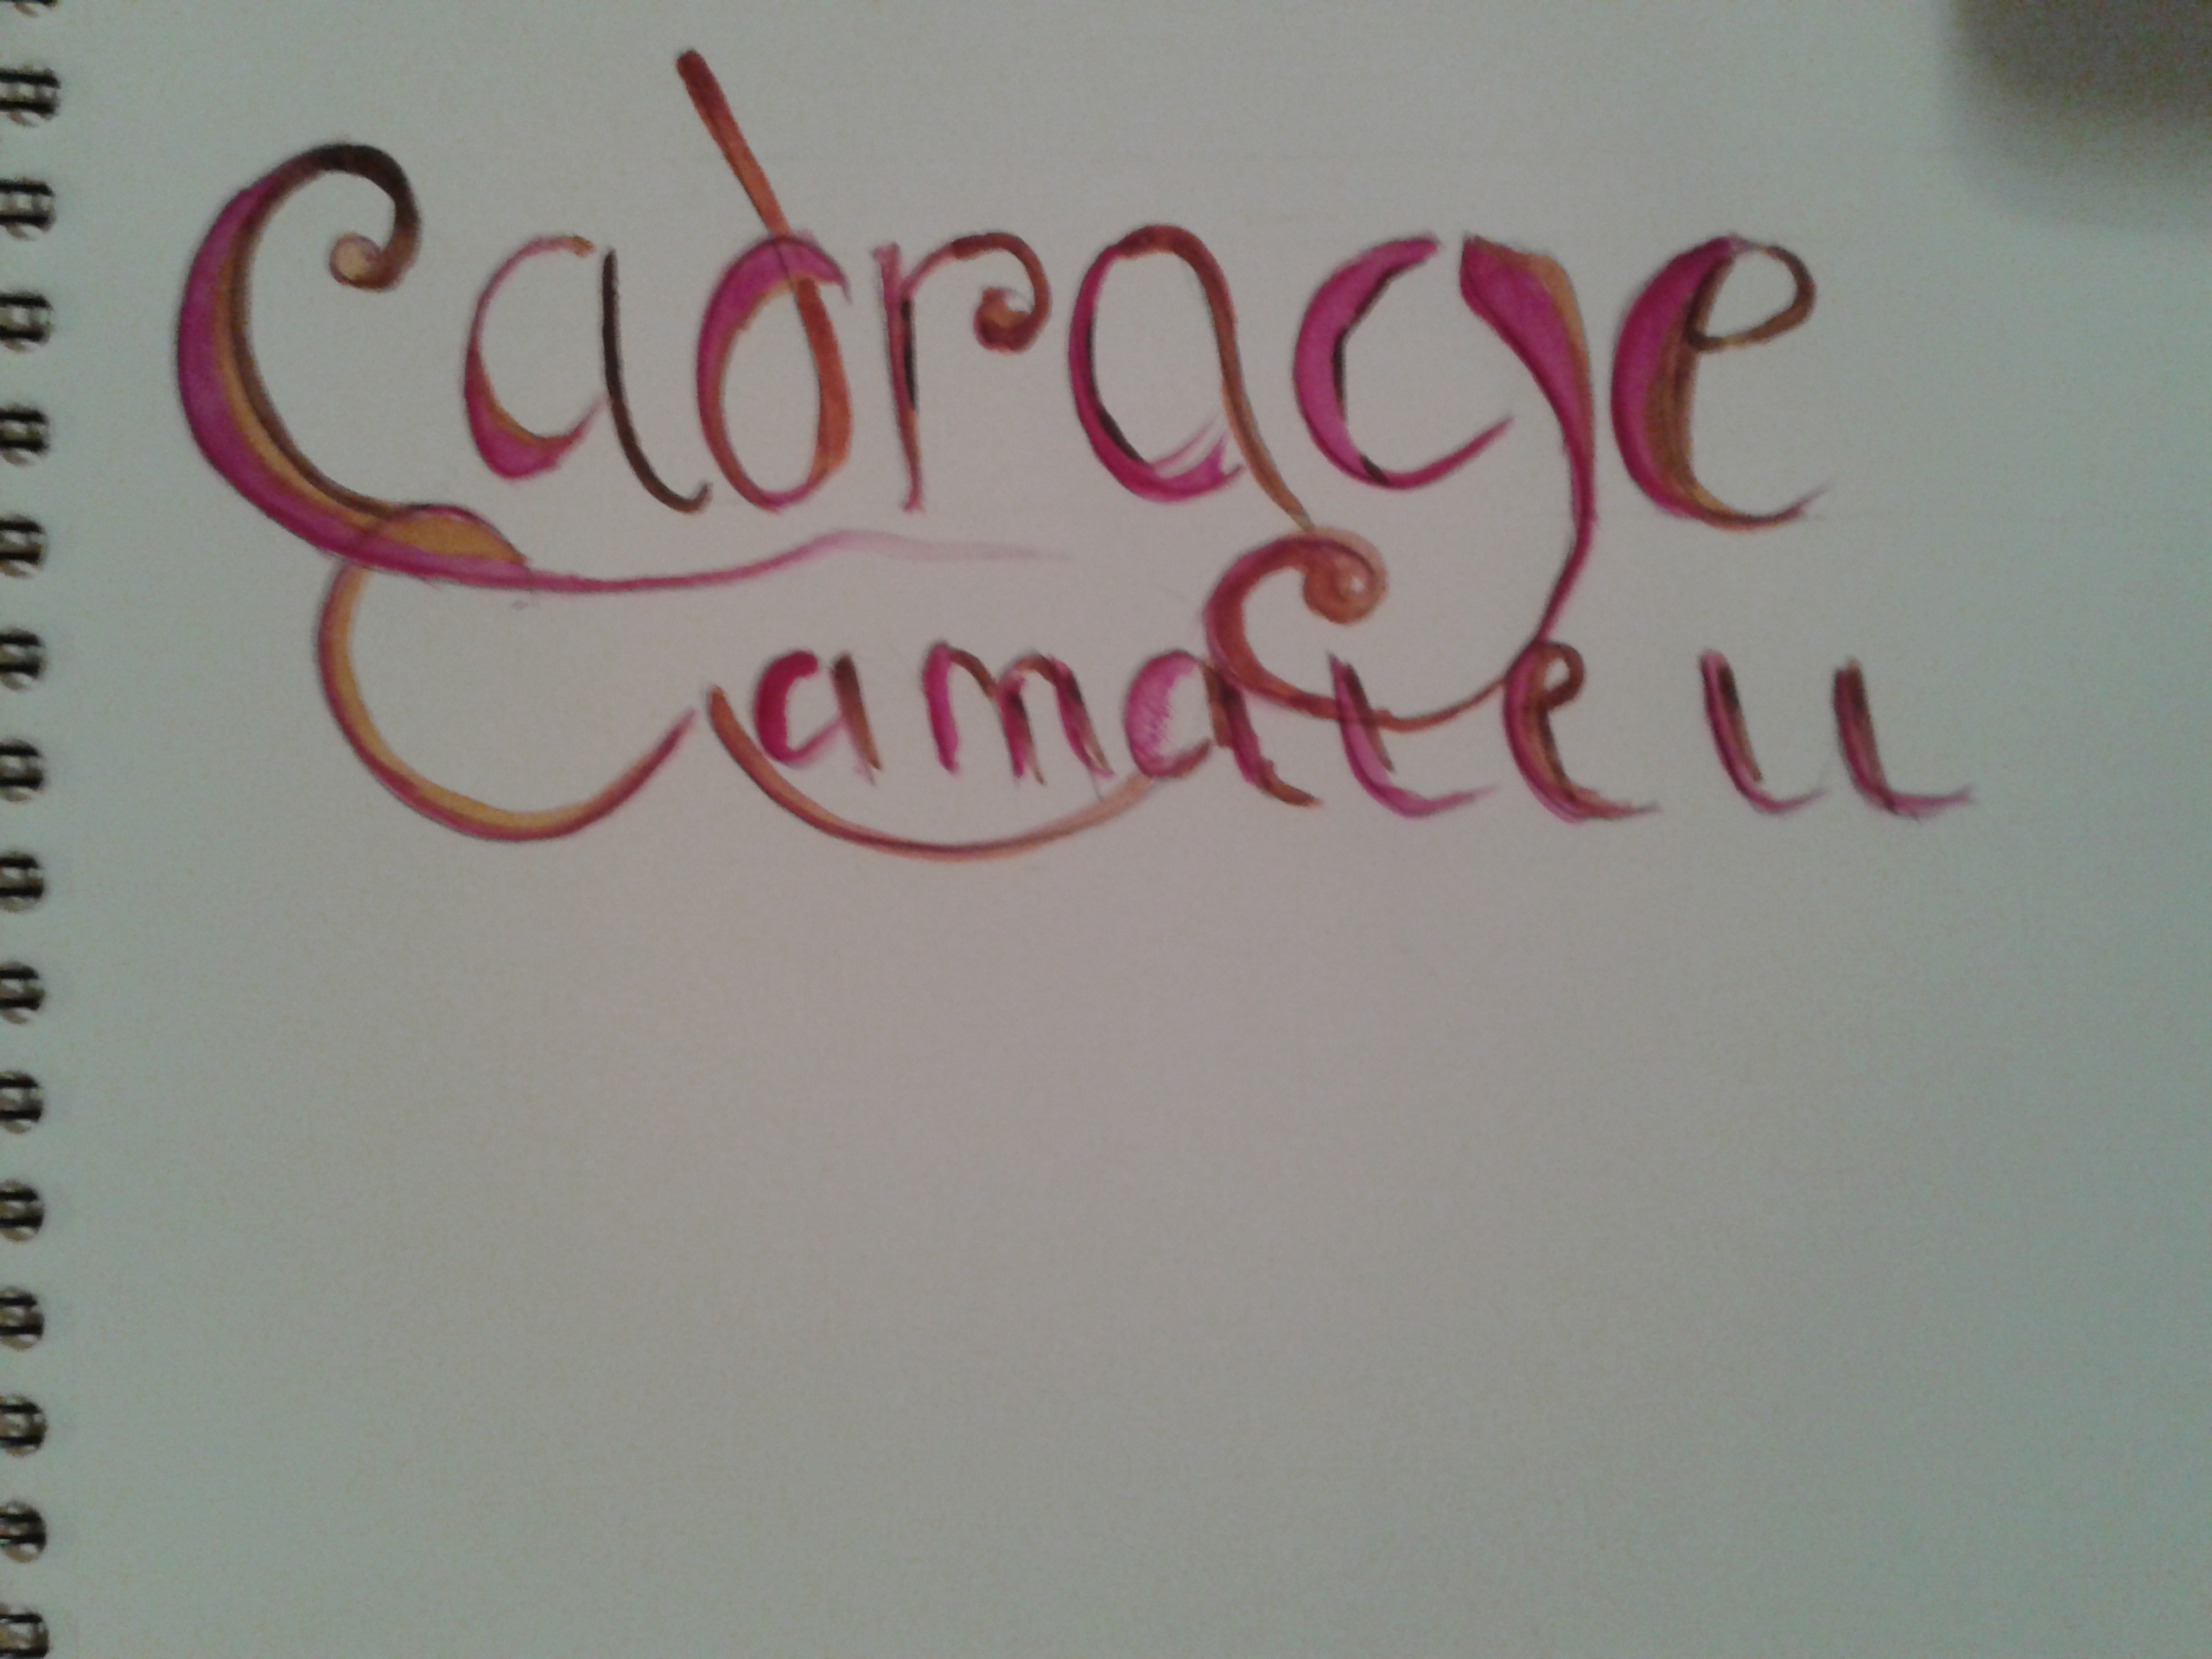 Cadrage
amateu